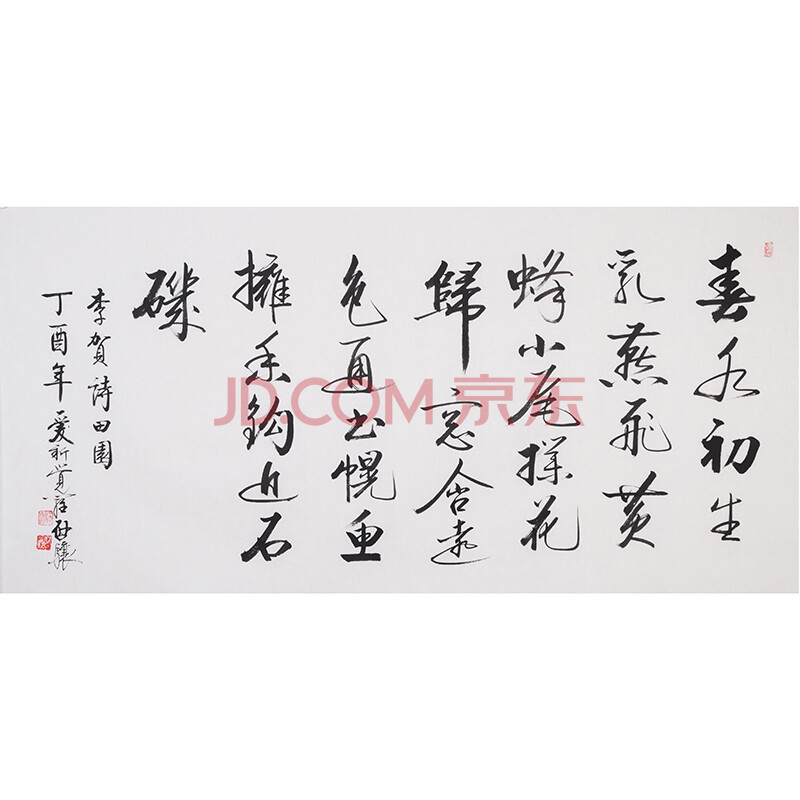 春水初生
乳燕飛黄
蜂小尾撲花
歸窓含遠
色通书幌魚
擁香鈎近石
磯
李賀詩田園
丁酉年愛新覺羅驤
JD.COM 京东